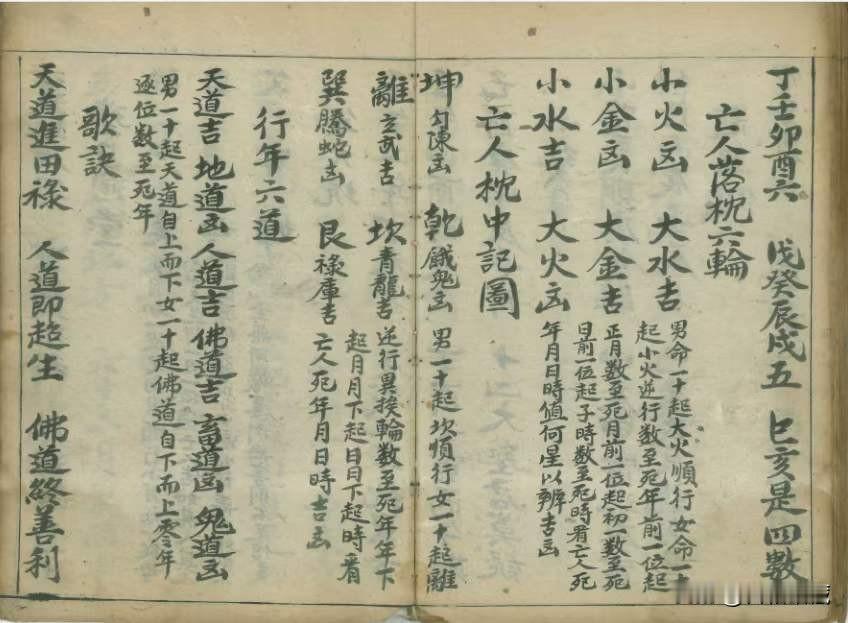 丁壬卯酉六 戊癸辰戌五 巳亥是四數
亡人落枕六輪
小火凶 大水吉
小金凶 大金吉
小水吉 大火凶
男命一十起大火順行女命一十
起小火逆行數至死年前一位起
正月数至死月前一位起初一数至死
日前一位起子時数至死時看亡人死
年月日時值何星以辨吉凶
亡人枕中記圖
坤勾陳凶 乾餓鬼凶 男一十起坎順行女一十起離
離玄武吉 坎青龍吉 逆行異挨輪数至死年年下
起月月下起日日下起時看
巽騰蛇凶 艮祿庫吉 亡人死年月日時吉凶
行年六道
天道吉 地道凶 人道吉 佛道吉 畜道凶 鬼道凶
男一十起天道自上而下女一十起佛道自下而上零年
逐位數至死年
歌訣
天道進田祿 人道即超生 佛道終善利